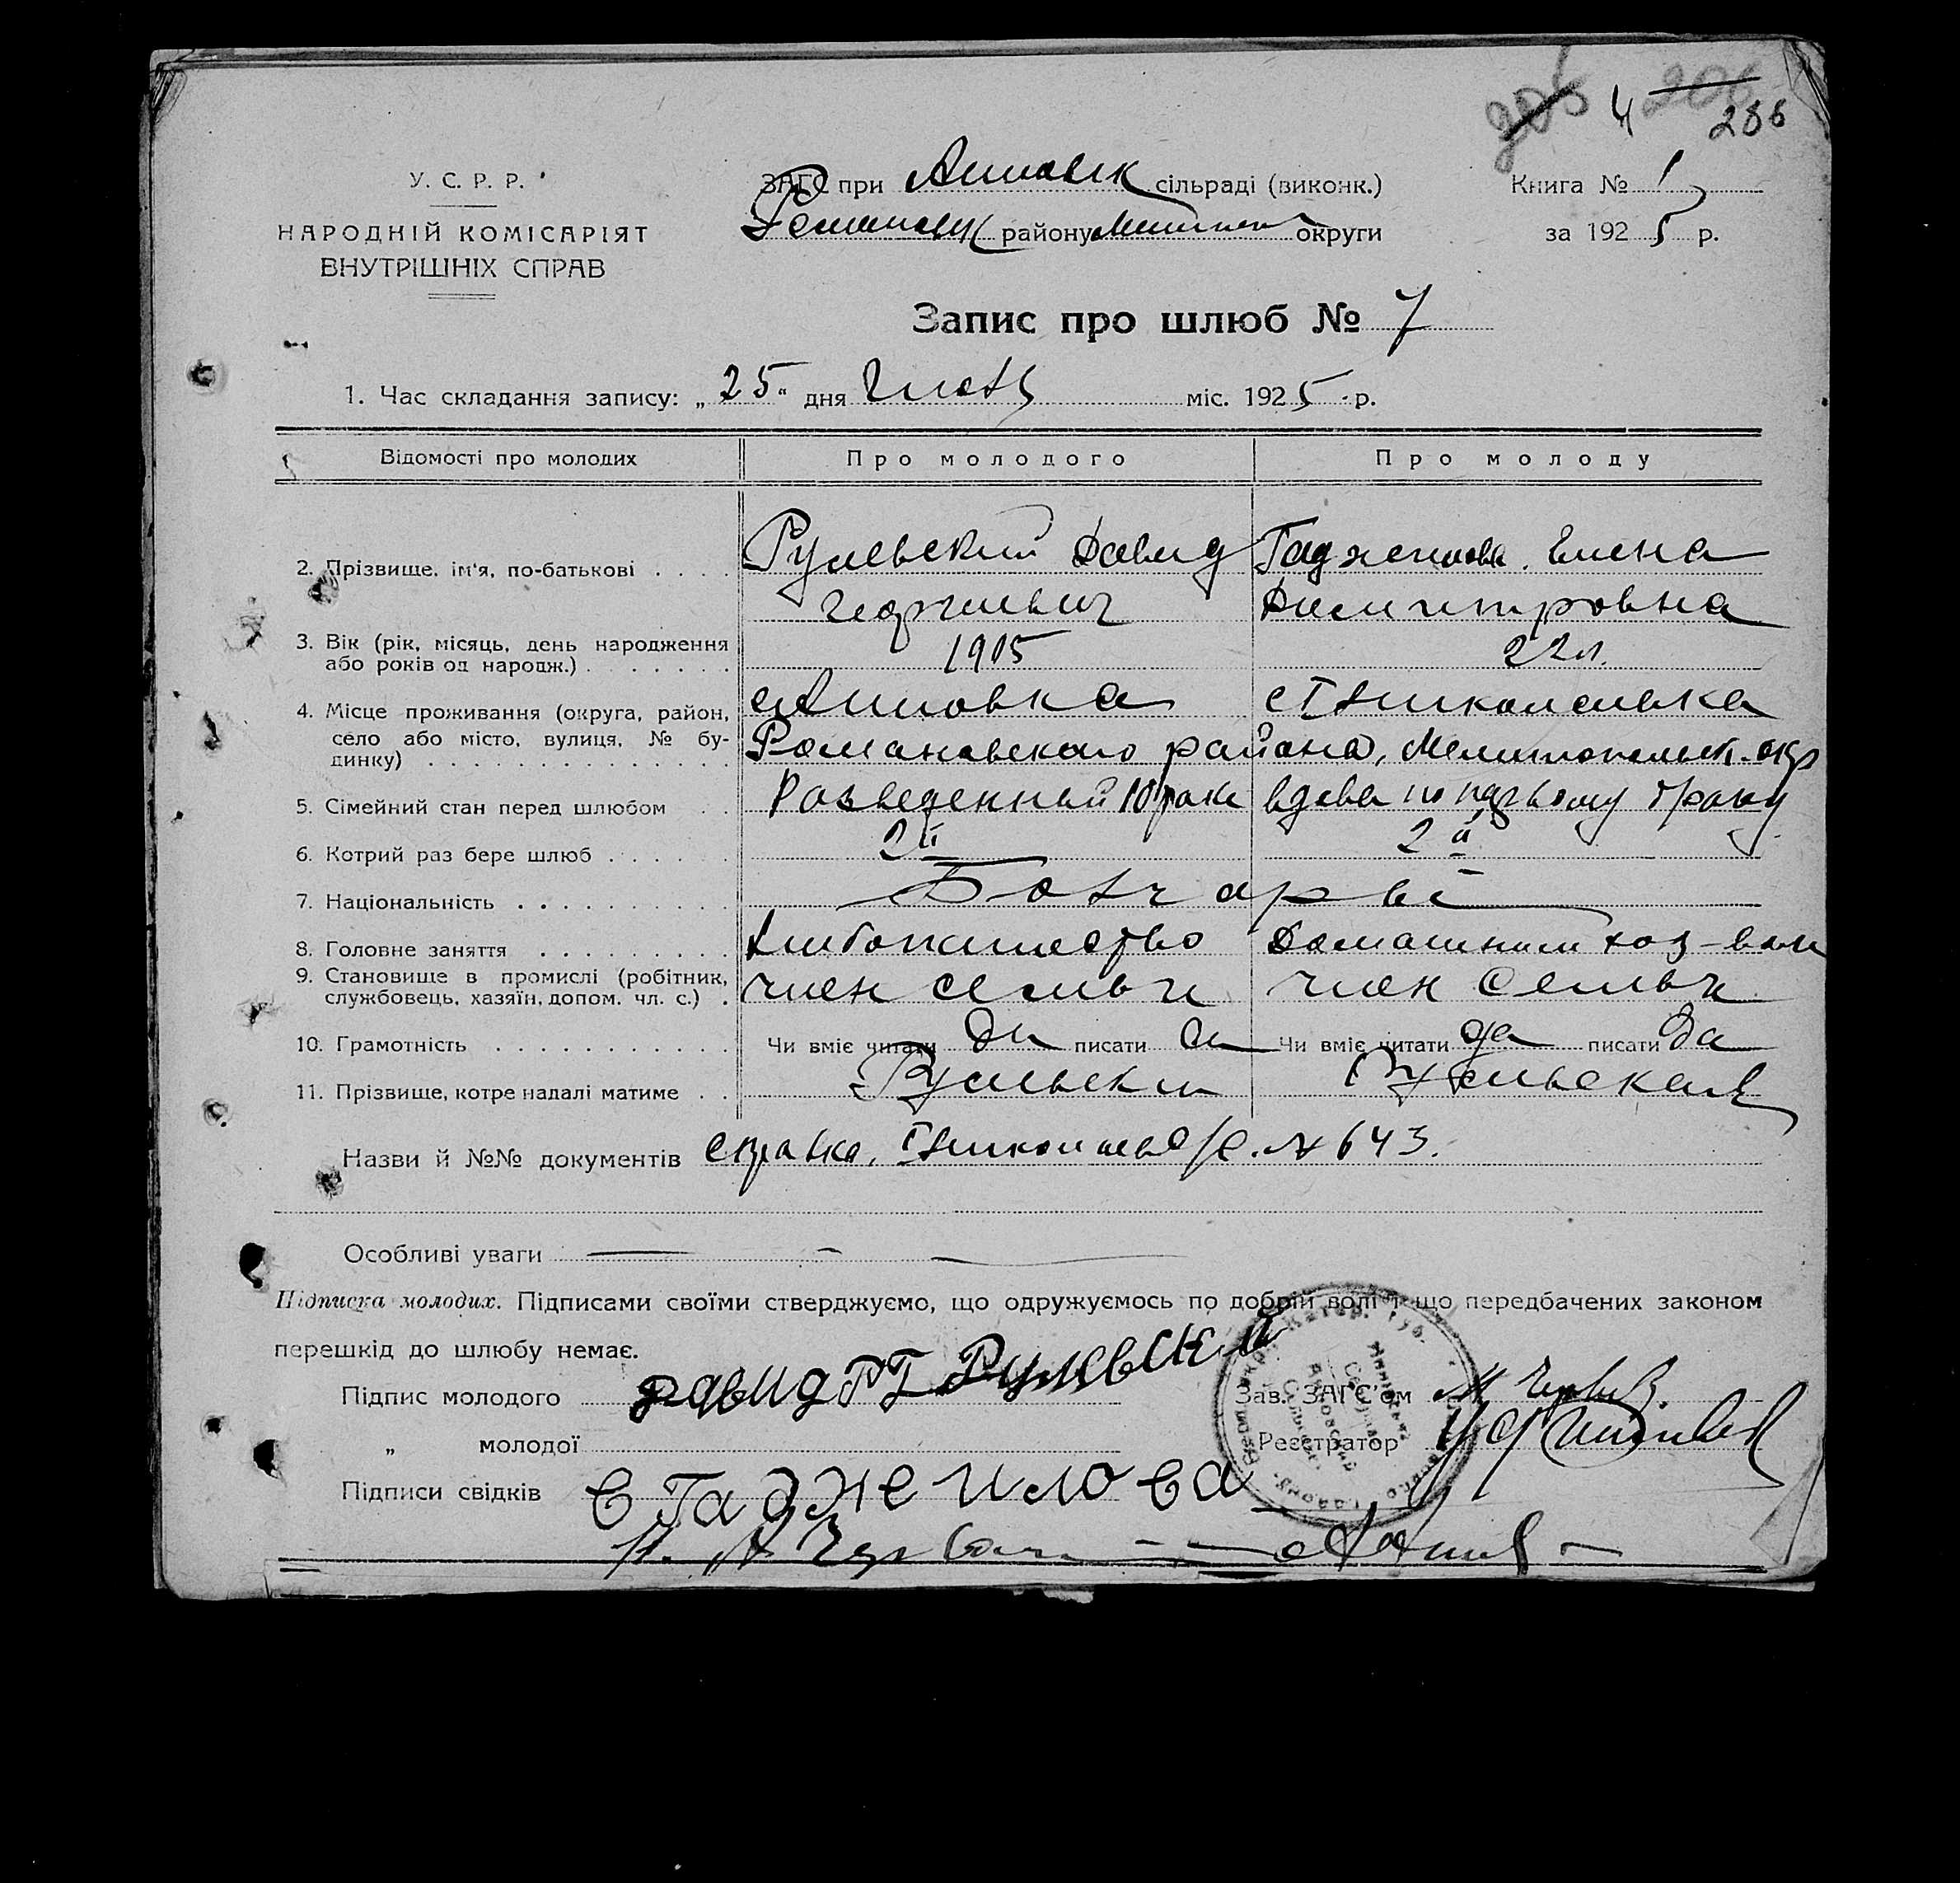 205 4 206
286
У. С. Р. Р.
НАРОДНІЙ КОМІСАРІЯТ
ВНУТРІШНІХ СПРАВ
ЗАГС при Анновск сільраді (виконк.)
Романовск району Мелитоп округи
Книга № 1
за 1925 р.
Запис про шлюб № 7
1. Час складання запису: „25" дня міс. 1925 р.
Відомості про молодих Про молодого Про молоду
2. Прізвище, ім'я, по-батькові . . . . Рулевский Давид Гаджилова Елена
Георгиевич Димитровна
3. Вік (рік, місяць, день народження або років од народж.) . . . . . . . 1905 22 л.
4. Місце проживання (округа, район, село або місто, вулиця, № будинку) . . . . . . . . . . . . . . с Анновка
Романовского района, Мелитопольск. окр
5. Сімейний стан перед шлюбом . . Разведенный вдова по первому браку
6. Котрий раз бере шлюб . . . . . . 2й 2й
7. Національність . . . . . . . . . . Болгары
8. Головне заняття . . . . . . . . . Хлебопашество Домашним хоз-вом
9. Становище в промислі (робітник, службовець, хазяїн, допом. чл. с.) . член семьи член семьи
10. Грамотність . . . . . . . . . . . Чи вміє читати да писати да Чи вміє читати да писати да
11. Прізвище, котре надалі матиме . . Рулевский Рулевская
Назви й №№ документів справка, № 643.
Особливі уваги — — —
Підписка молодих. Підписами своїми стверджуємо, що одружуємось по добрій волі і що передбачених законом
перешкід до шлюбу немає.
Підпис молодого Давид Г Рулевский
Зав. ЗАГС'ом
„ молодої
Реєстратор
Підписи свідків Е Гаджилова